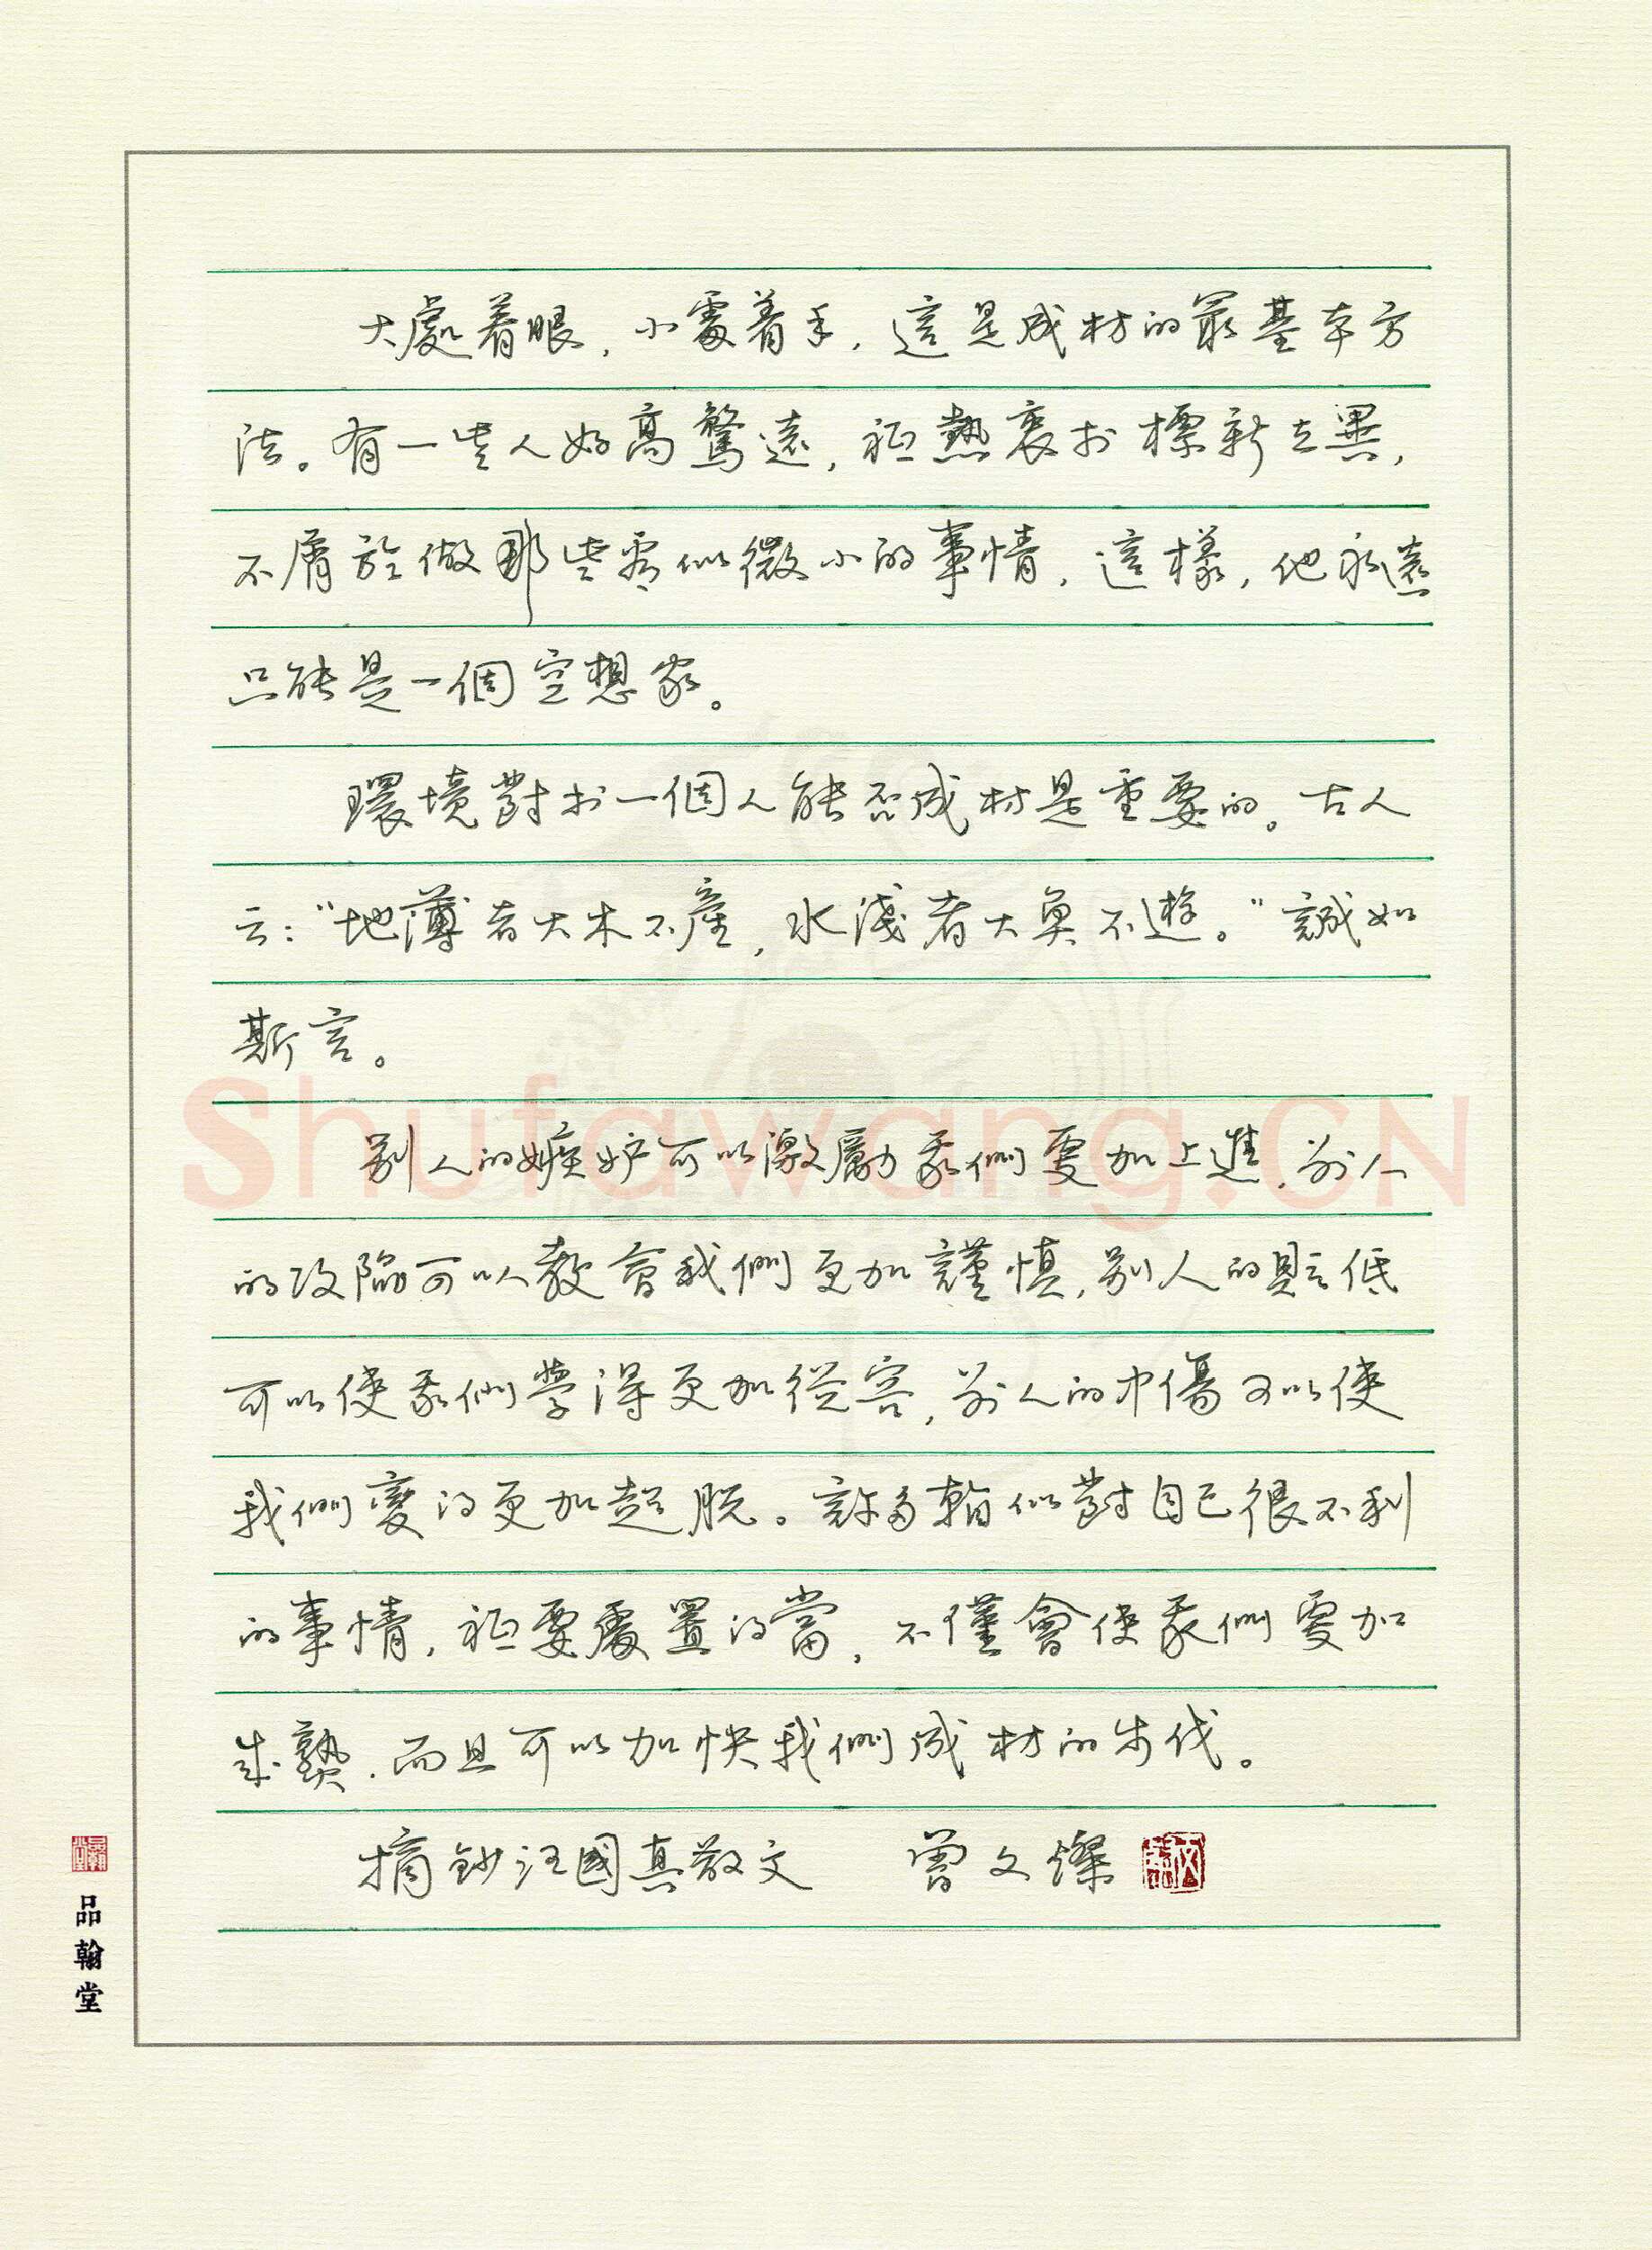 大處着眼，小處着手，這是成材的最基本方
法。有一些人好高騖遠，祇熱衷於標新立異，
不屑於做那些看似微小的事情，這樣，他永遠
只能是一個空想家。
環境對於一個人能否成材是重要的。古人
云："地薄者大木不產，水淺者大魚不遊。"誠如
斯言。
別人的嫉妒可以激勵我們更加上進，別人
的攻陷可以教會我們更加謹慎，別人的貶低
可以使我們學得更加從容，別人的中傷可以使
我們變得更加超脫。許多貌似對自己很不利
的事情，祇要處置得當，不僅會使我們更加
成熟，而且可以加快我們成材的步伐。
摘鈔汪國真散文 曾文燦
品翰堂
Shufawang.CN